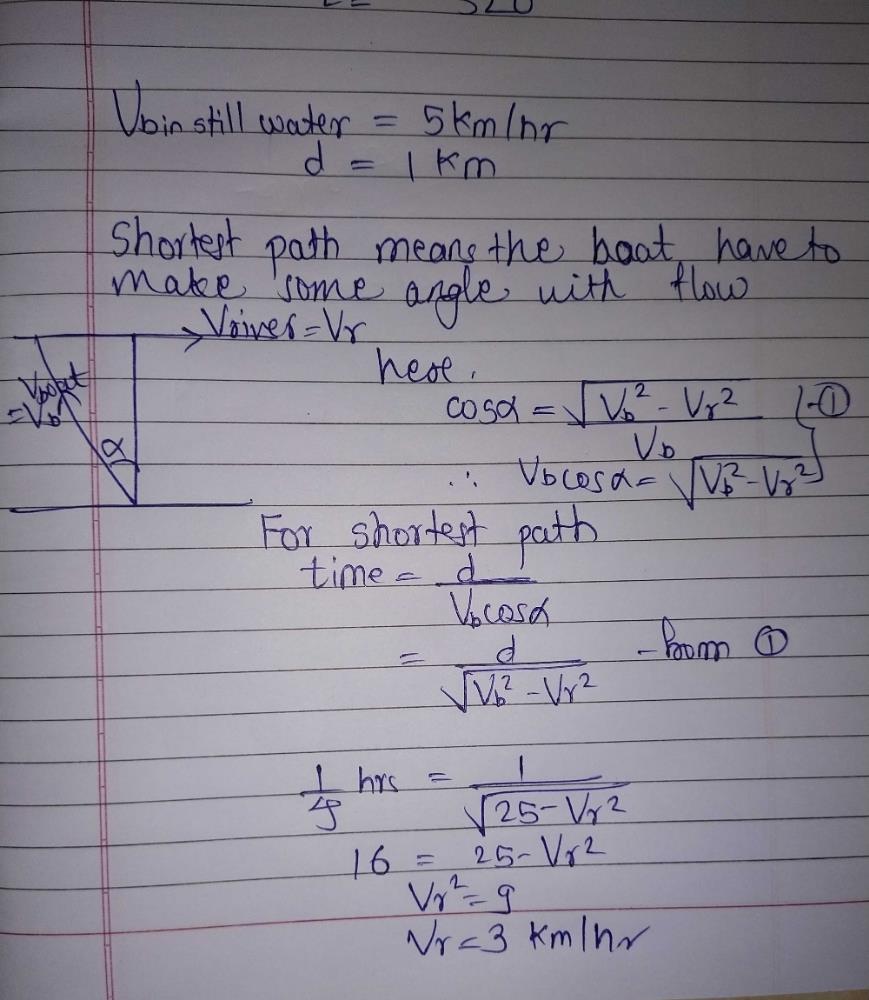 320
Vb in still water = 5km/hr
d = 1 Km
Shortest path means the boat have to
make some angle with flow
Vriver = Vr
here,
Vboat
= Vb
α
cosα = √(Vb² - Vr²) / Vb -①
∴ Vb cosα = √(Vb² - Vr²)
For shortest path
time = d / Vb cosα
= d / √(Vb² - Vr²) - from ①
1/4 hrs = 1 / √(25 - Vr²)
16 = 25 - Vr²
Vr² = 9
Vr = 3 km/hr